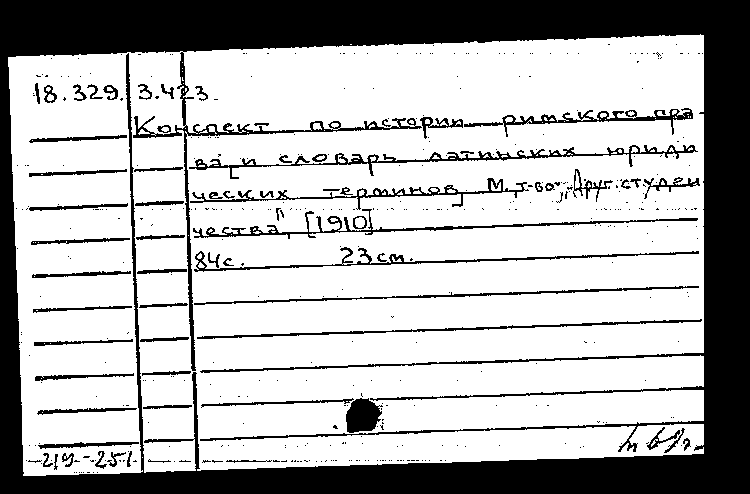 18.329. 3.423.
Конспект по истории римского пра-
ва [и словарь латинских юриди
ческих терминов] М., т-во „Друг. студен
чества", [1910].
84с. 23 см.
219-251